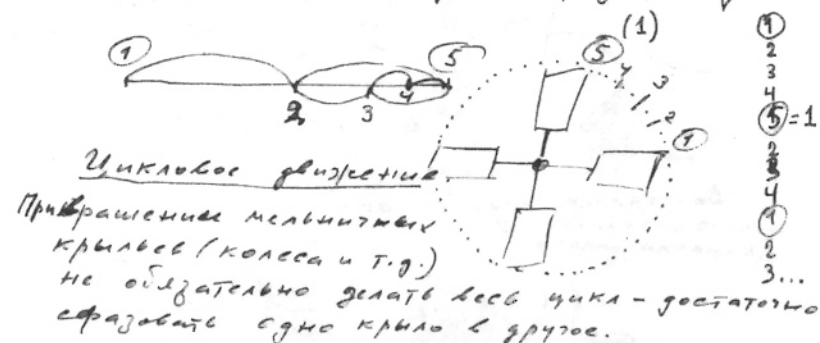 1 5 5 (1) 1
4 3 2 1
2 3 4 2
3
4
5=1
2
3
4
1
2
3...
Цикловое движение
При вращении мельничных
крыльев (колеса и т.д.)
не обязательно делать весь цикл - достаточно
сфазовать одно крыло в другое.